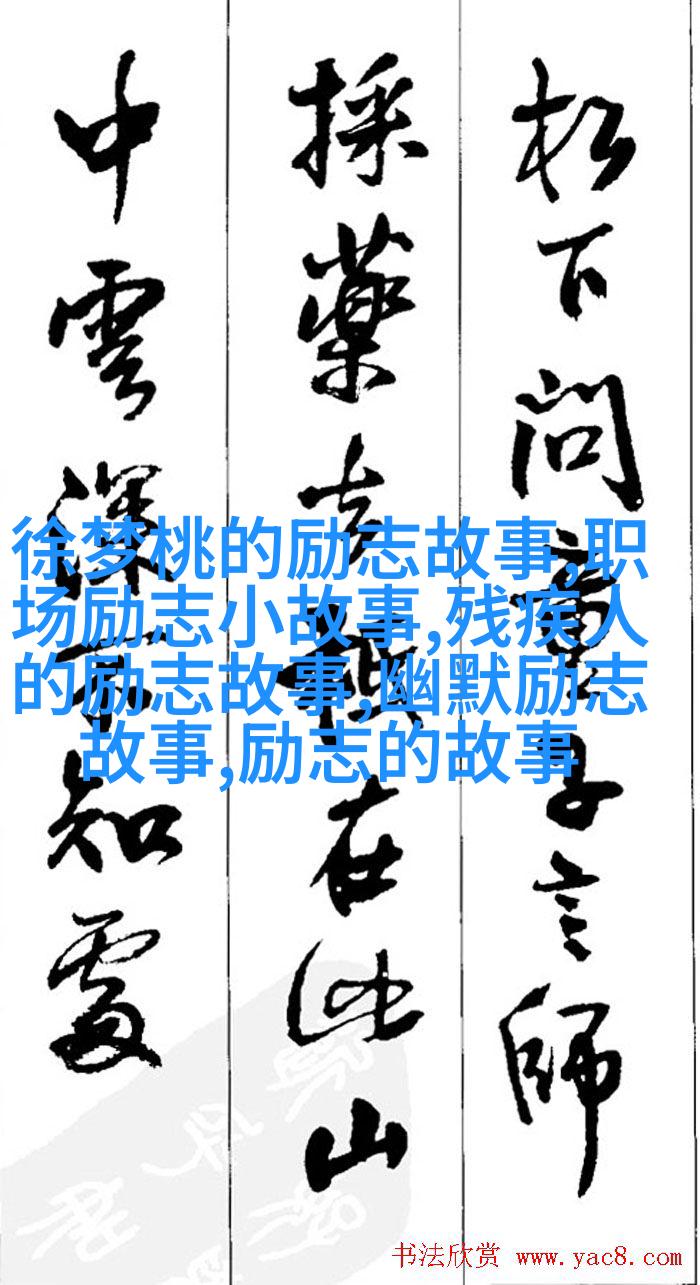 松下问童子言師
採薬去祇在此山
中雲深不知處
徐梦桃的励志故事,职
场励志小故事,残疾人
的励志故事,幽默励志
故事,励志的故事
书法欣赏 www.yac8.com